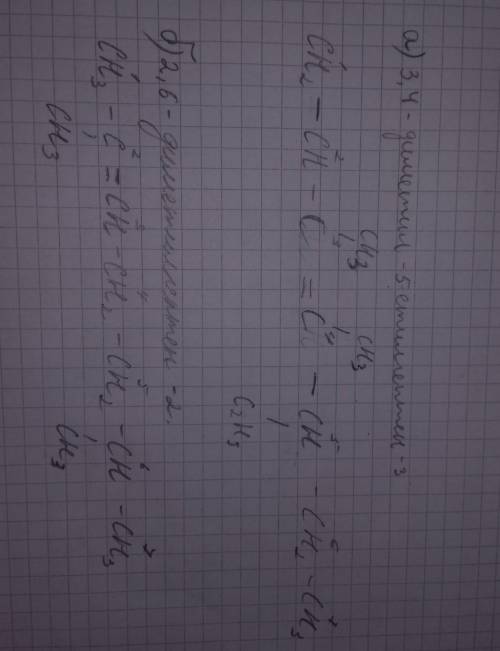 а) 3,4 - диметил - 5 етилгептен - 3
CH₃ CH₃
¹CH₂ — ²CH — ³C = ⁴C — ⁵CH — ⁶CH₂ — ⁷CH₃
C₂H₅
б) 2,6 - диметилгептен - 2.
¹CH₃ - ²C = ³CH - ⁴CH₂ - ⁵CH₂ - ⁶CH - ⁷CH₃
CH₃ CH₃